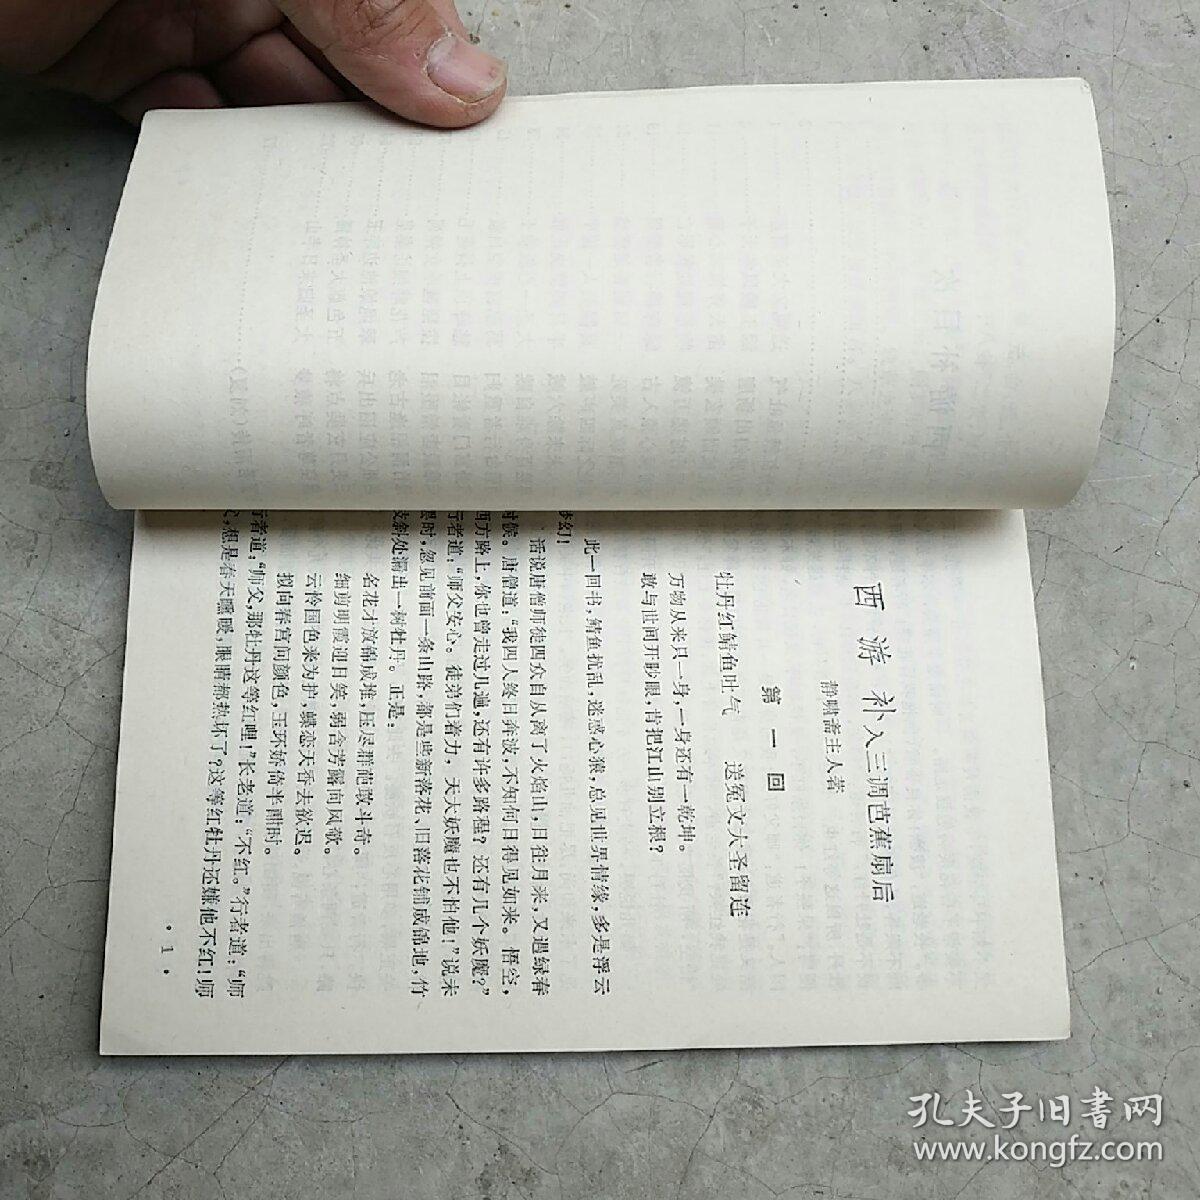 西游补入三调芭蕉扇后
静啸斋主人著
第一回
牡丹红鲭鱼吐气 送冤文大圣留连
万物从来只一身，一身还有一乾坤。
敢与世间开眇眼，肯把江山别立根？
此一回书，鲭鱼扰乱，迷惑心猿，总见世界情缘，多是浮云
梦幻！
话说唐僧师徒四众自从离了火焰山，日往月来，又遇绿春
时候。唐僧道：“我四人终日奔波，不知何日得见如来。悟空，
西方路上，你也曾走过几遍，还有许多路程？还有几个妖魔？”
行者道：“师父安心。徒弟们着力，天大妖魔也不怕他！”说未
罢时，忽见前面一条山路，都是些新落花、旧落花铺成锦地，竹
枝斜处漏出一树牡丹。正是：
名花才放锦成堆，压尽群葩敢斗奇。
细剪明霞迎日笑，弱含芳露向风欹。
云怜国色来为护，蝶恋天香去欲迟。
拟向春宫问颜色，玉环娇倚半酣时。
行者道：“师父，那牡丹这等红哩！”长老道：“不红。”行者道：“师
父，想是春天曛暖，眼睛都热坏了？这等红牡丹还嫌他不红！师
·1·
孔夫子旧书网
www.kongfz.com